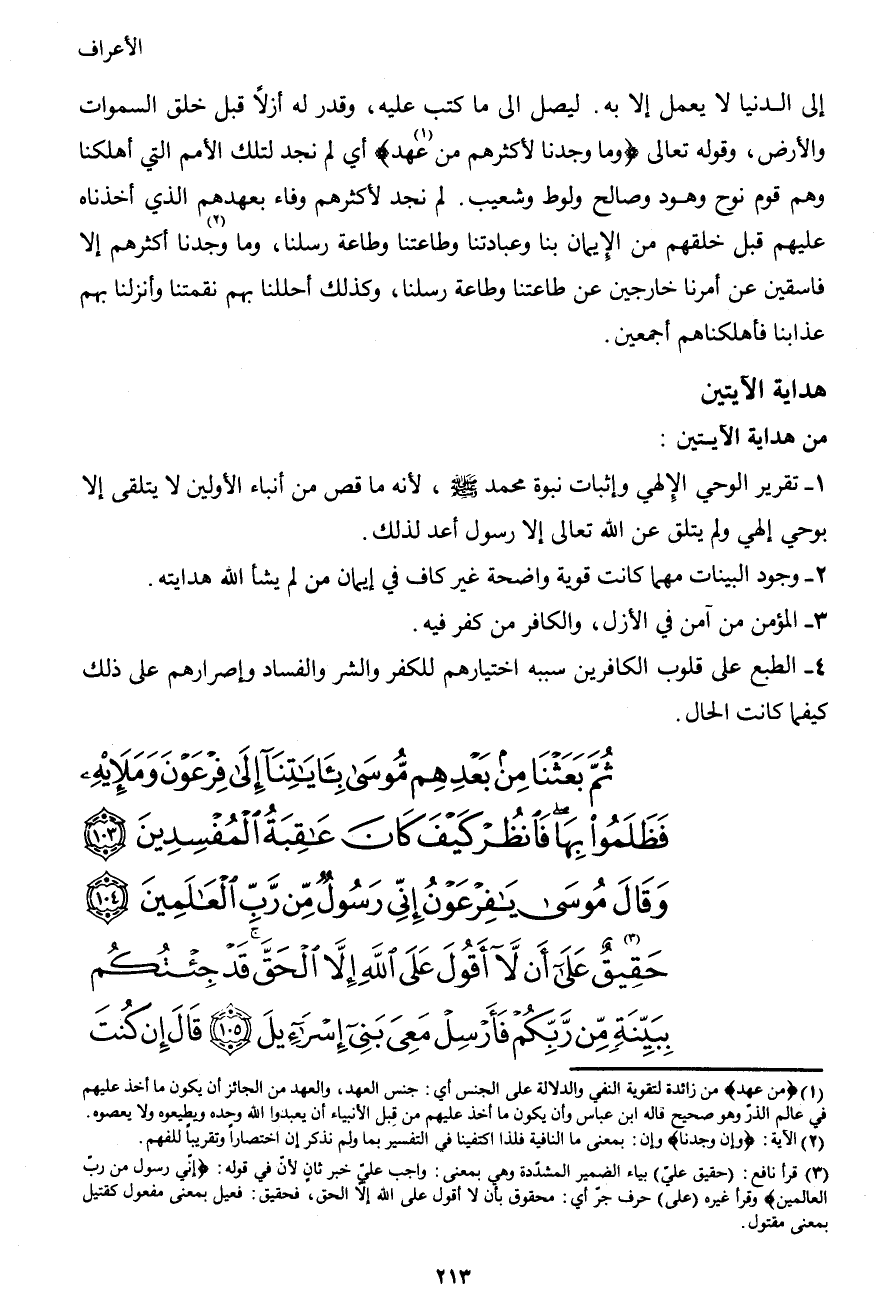 الأعراف
إلى الـدنيا لا يعمل إلا به. ليصل الى ما كتب عليه، وقدر له أزلاً قبل خلق السموات
والأرض، وقوله تعالى ﴿وما وجدنا لأكثرهم من عهد﴾(١) أي لم نجد لتلك الأمم التي أهلكنا
وهم قوم نوح وهـود وصالح ولوط وشعيب. لم نجد لأكثرهم وفاء بعهدهم الذي أخذناه
عليهم قبل خلقهم من الإيمان بنا وعبادتنا وطاعتنا وطاعة رسلنا، وما وجدنا(٢) أكثرهم إلا
فاسقين عن أمرنا خارجين عن طاعتنا وطاعة رسلنا، وكذلك أحللنا بهم نقمتنا وأنزلنا بهم
عذابنا فأهلكناهم أجمعين.
هداية الآيتين
من هداية الآيـتين :
١ـ تقرير الوحي الإلهي وإثبات نبوة محمد ﷺ ، لأنه ما قص من أنباء الأولين لا يتلقى إلا
بوحي إلهي ولم يتلق عن الله تعالى إلا رسول أعد لذلك.
٢ـ وجود البينات مهما كانت قوية واضحة غير كاف في إيمان من لم يشأ الله هدايته.
٣ـ المؤمن من آمن في الأزل، والكافر من كفر فيه.
٤ـ الطبع على قلوب الكافرين سببه اختيارهم للكفر والشر والفساد وإصرارهم على ذلك
كيفما كانت الحال.
ثُمَّ بَعَثْنَا مِنۢ بَعْدِهِم مُّوسَىٰ بِـَٔايَٰتِنَآ إِلَىٰ فِرْعَوْنَ وَمَلَإِي۟هِۦ
فَظَلَمُوا۟ بِهَا ۖ فَٱنظُرْ كَيْفَ كَانَ عَٰقِبَةُ ٱلْمُفْسِدِينَ ﴿١٠٣﴾
وَقَالَ مُوسَىٰ يَٰفِرْعَوْنُ إِنِّى رَسُولٌ مِّن رَّبِّ ٱلْعَٰلَمِينَ ﴿١٠٤﴾
حَقِيقٌ(٣) عَلَىٰٓ أَن لَّآ أَقُولَ عَلَى ٱللَّهِ إِلَّا ٱلْحَقَّ ۚ قَدْ جِئْتُكُم
بِبَيِّنَةٍ مِّن رَّبِّكُمْ فَأَرْسِلْ مَعِىَ بَنِىٓ إِسْرَٰٓءِيلَ ﴿١٠٥﴾ قَالَ إِن كُنتَ
(١) ﴿من عهد﴾ من زائدة لتقوية النفي والدلالة على الجنس أي: جنس العهد، والعهد من الجائز أن يكون ما أخذ عليهم
في عالم الذرّ وهو صحيح قاله ابن عباس وأن يكون ما أخذ عليهم من قِبل الأنبياء أن يعبدوا الله وحده ويطيعوه ولا يعصوه.
(٢) الآية: ﴿وإن وجدنا﴾ وإن: بمعنى ما النافية فلذا اكتفينا في التفسير بما ولم نذكر إن اختصاراً وتقريباً للفهم.
(٣) قرأ نافع: (حقيق عليّ) بياء الضمير المشدّدة وهي بمعنى: واجب عليّ خبر ثانٍ لأنّ في قوله: ﴿إنّي رسول من ربّ
العالمين﴾ وقرأ غيره (على) حرف جرّ أي: محقوق بأن لا أقول على الله إلّا الحق، فحقيق: فعيل بمعنى مفعول كقتيل
بمعنى مقتول.
٢١٣